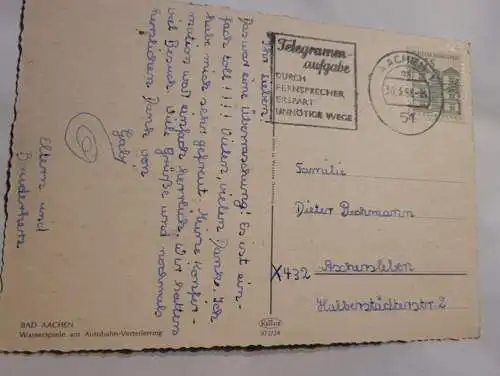 Ihr Lieben!
Das war eine Überraschung! Es ist ein-
fach toll!!!! Vielen, vielen Dank. Ich
habe mich sehr gefreut. Meine Konfir-
mation war einfach herrlich. Wir hatten
viel Besuch. Viele Grüße und nochmals
herzlichen Dank von
Gabi
Eltern und
BAD AACHEN
Wasserspiele am Autobahn-Verteilerring
Telegramm-
aufgabe
DURCH
FERNSPRECHER
ERSPART
UNNÖTIGE WEGE
AACHEN
51
Familie
Dieter Buchmann
X432 Aschersleben
Halberstädterstr 2